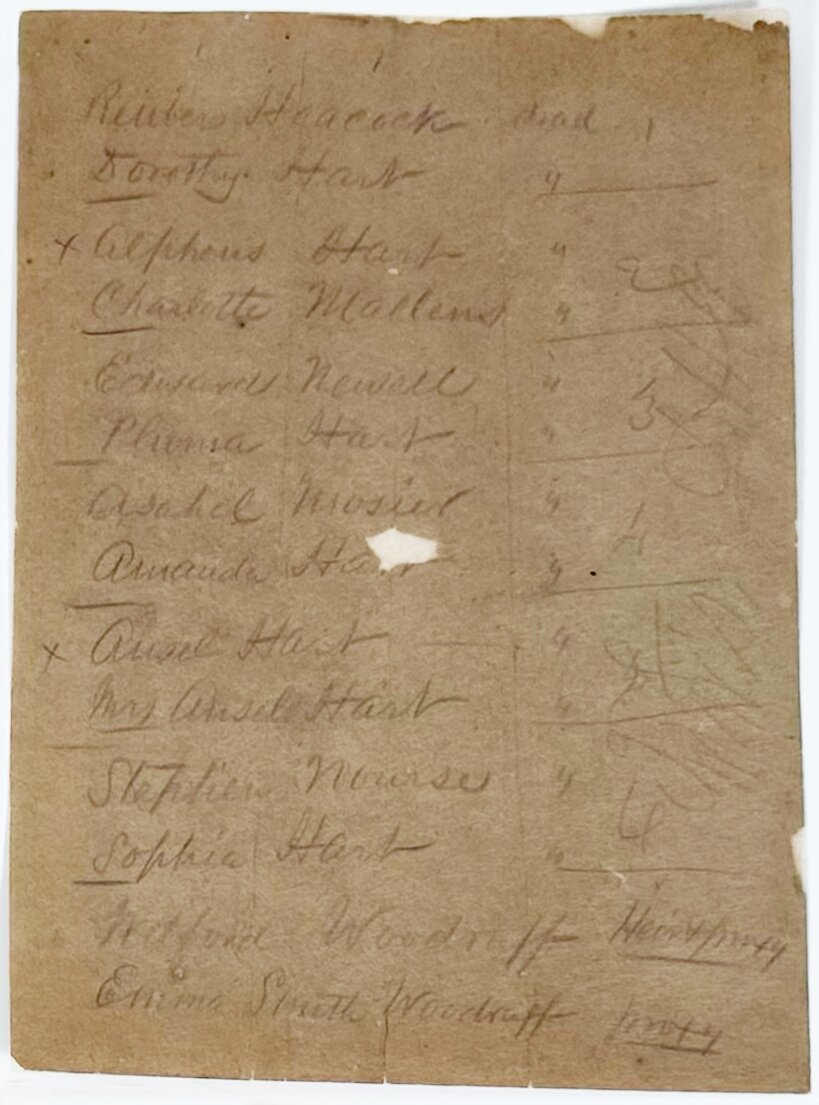 Reuben Heacock dead 1
Dorothy Hart "
x Alpheus Hart " 2
Charlotte Mallery "
Edward Newell " 3
Phuma Hart "
Asahel Mosier " 4
Amanda Hart "
x Ansel Hart "
Mrs Ansel Hart "
Stephen Nourse " 6
Sophia Hart "
Wilford Woodruff Heir & proxy
Emma Smith Woodruff proxy